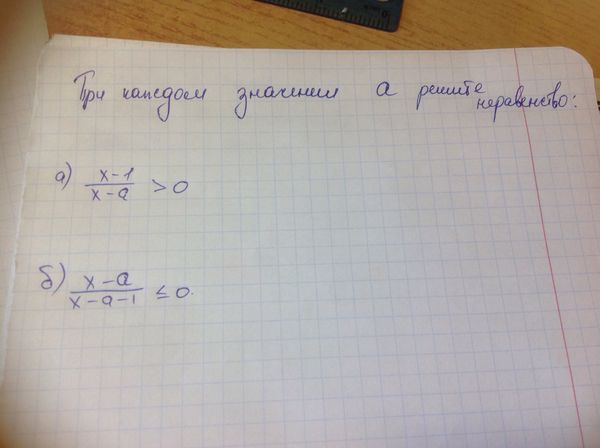 При каждом значении a решите
неравенство:
а) \frac{x-1}{x-a} > 0
б) \frac{x-a}{x-a-1} ≤ 0.